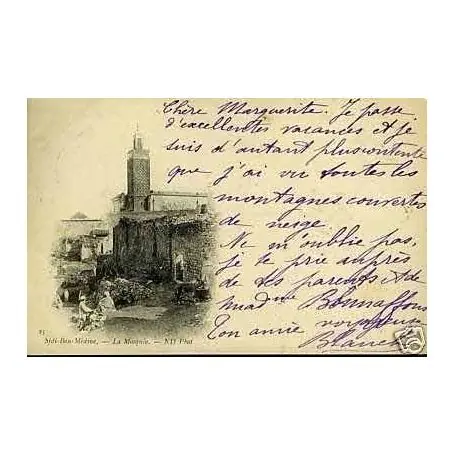 Chère Marguerite. Je passe
d'excellentes vacances et je
suis d'autant plus contente
que j'ai vu toutes les
montagnes couvertes
de neige.
Ne m'oublie pas,
je te prie auprès
de tes parents et de
madme Bonnaffous
Ton amie
Blanche
25
Sidi-Bou-Médine, — La Mosquée. — ND Phot